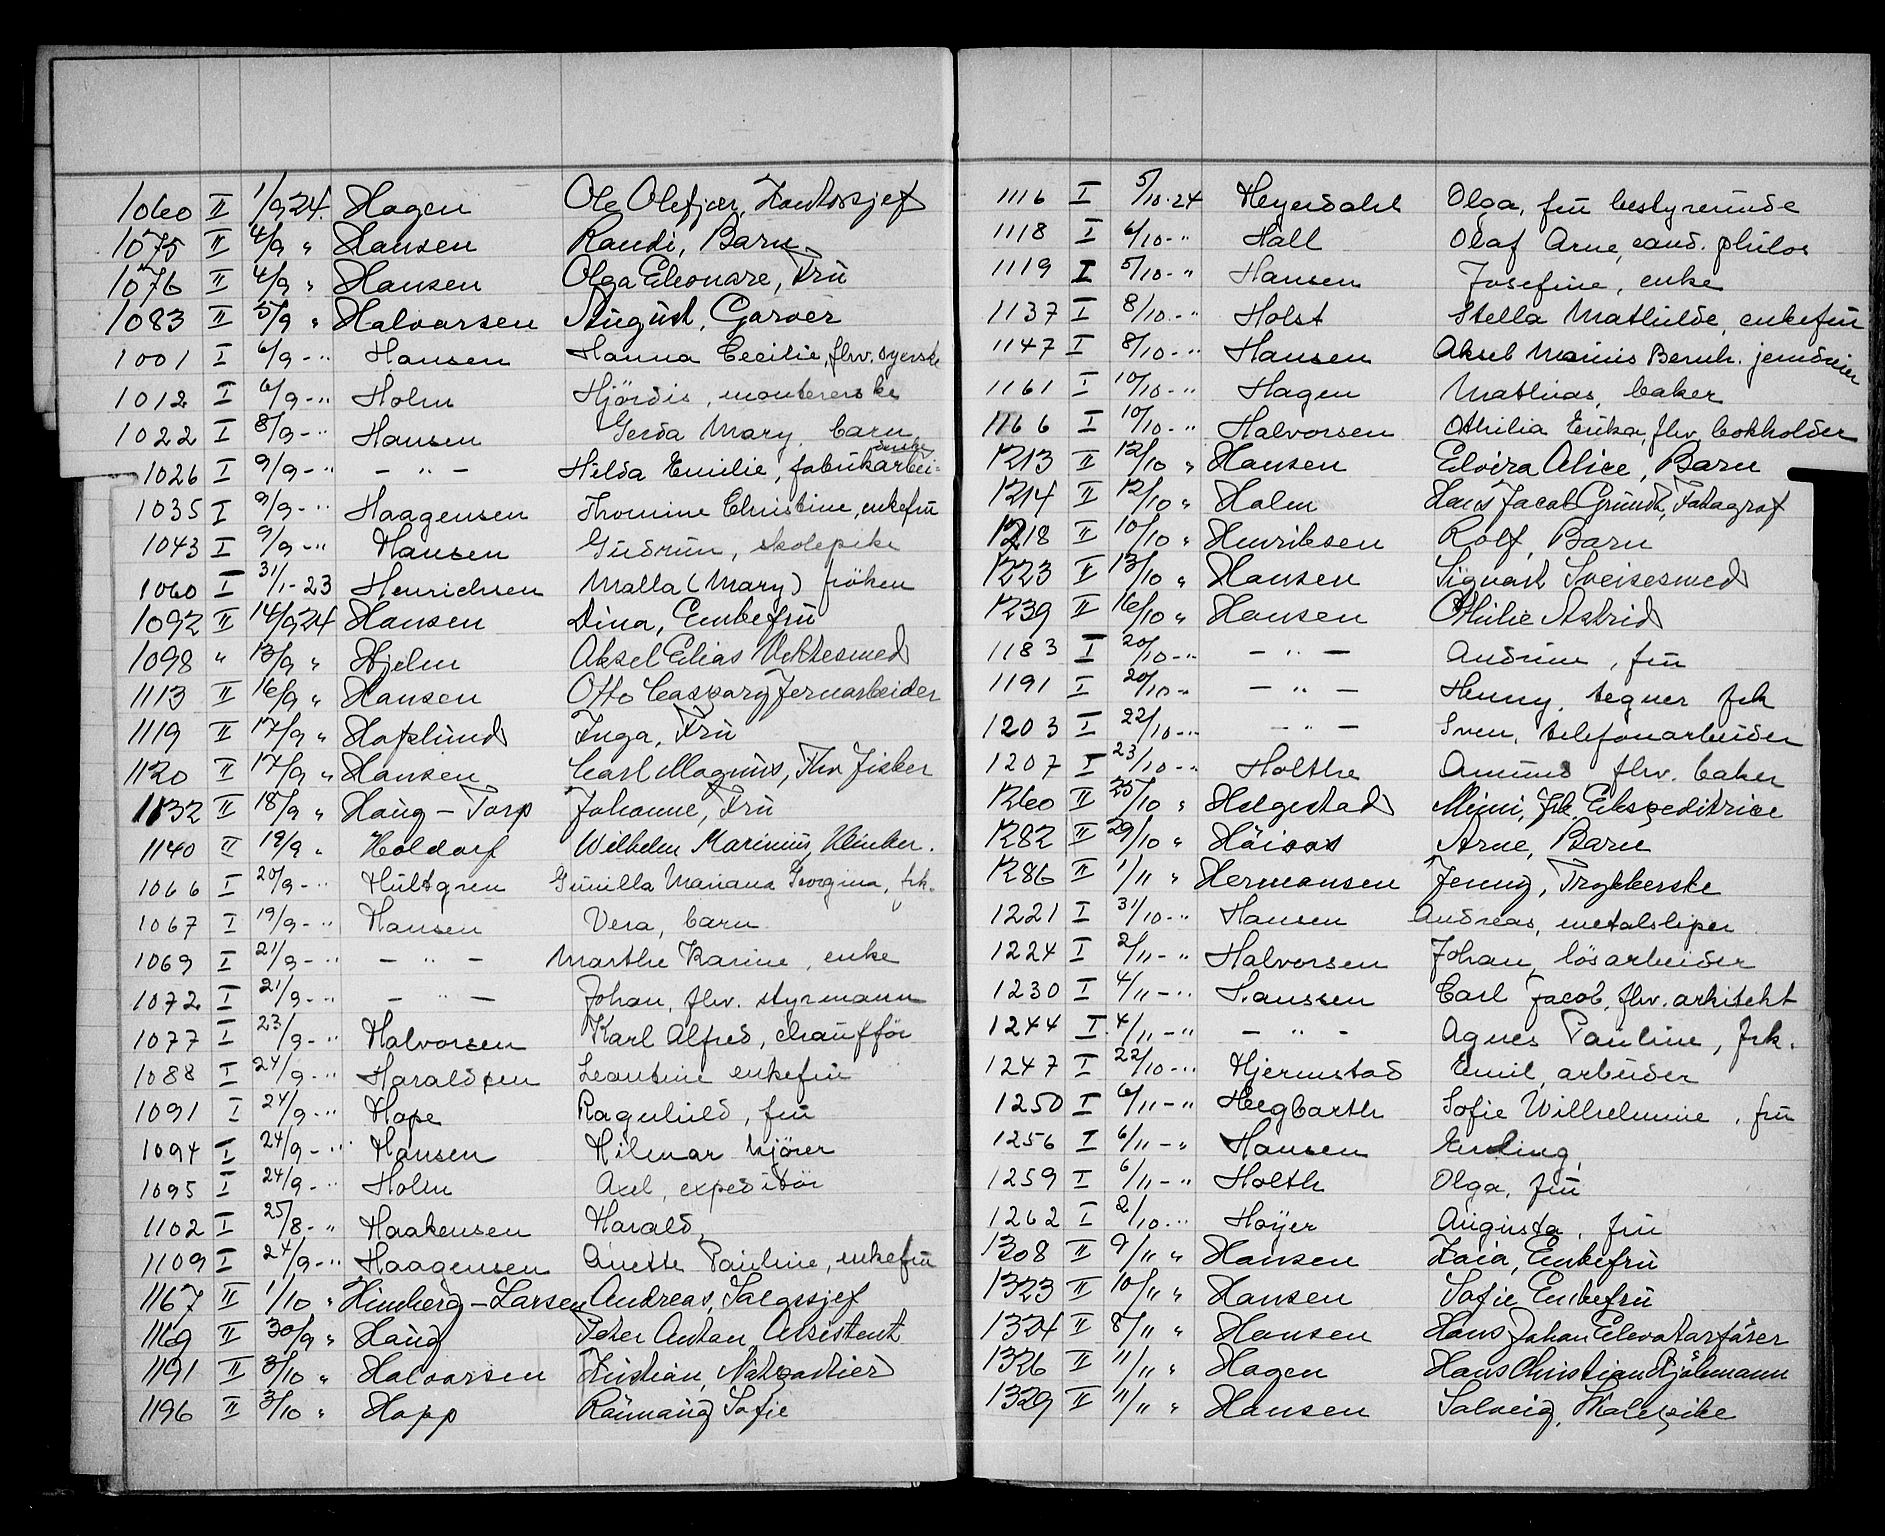 1060 II 1/9 24 Hagen Ole Olefjær, Kontorsjef
1075 II 4/9 " Hansen Randi, Barn
1076 II 4/9 " Hansen Olga Eleonare, Fru
1083 II 5/9 " Halvorsen August, Garver
1001 I 6/9 - " Hansen Hanna Cecilie, fhv. syerske
1012 I 6/9 - " Holm Hjördis, montererske
1022 I 8/9 - " Hansen Gerda Mary, barn
1026 I 9/9 - " - " - Hilda Emilie, fabrikarbei=derske
1035 I 9/9 - " Haagensen Thomine Christine, enkefru
1043 I 9/9 - " Hansen Gudrun, skolepike
1060 I 31/1 - 23 Henrichsen Malla (Mary) fröken
1092 II 14/9 24 Hansen Dina, Enkefru
1098 " 13/9 " Hjelm Aksel Elias Vektesmed
1113 II 16/9 " Hansen Otto Caspary Jernarbeider
1119 II 17/9 " Hoflund Inga, Fru
1120 II 17/9 " Hansen Carl Magnus, Fhv Fisker
1132 II 18/9 " Haug - Torp Johanne, Fru
1140 II 19/9 " Holdorf Wilhelm Marinius, Klinker.
1066 I 20/9 - " Hultgren Gunilla Mariana Georgina, frk.
1067 I 19/9 - " Hansen Vera, barn
1069 I 21/9 - " - " - Marthe Karine, enke
1072 I 21/9 - " - " - Johan, fhv. styrmann
1077 I 23/9 - " Halvorsen Karl Alfred, chaufför
1088 I 24/9 - " Haraldsen Leontine enkefru
1091 I 24/9 - " Hope Ragnhild, fru
1094 I 24/9 - " Hansen Hilmar kjörer
1095 I 24/9 - " Holm Axel, expeditör
1102 I 25/8 - " Haakensen Harald,
1109 I 24/9 - " Haagensen Anette Pauline, enkefru
1167 II 1/10 " Himberg - Larsen Andreas, Salgssjef
1169 II 30/9 " Haug Peter Anton, Assistent
1191 II 3/10 " Halvorsen Kristian, Natportier
1196 II 3/10 " Hopp Ranmaug Sofie
1116 I 5/10 - 24 Heyerdahl Olga, fru bestyrerinde
1118 I 6/10 - " Hall Olaf Arne, cand. philos
1119 I 5/10 - " Hansen Josefine, enke
1137 I 8/10 - " Holst Stella Mathilde, enkefru
1147 I 8/10 - " Hansen Aksel Marius Bernh. jerndreier
1161 I 10/10 - " Hagen Mathias, baker
1166 I 10/10 - " Halvorsen Othilia Erika, fhv. bokholder
1213 II 12/10 " Hansen Elvira Alice, Barn
1214 II 12/10 " Holm Hans Jacob Grundt, Fotograf
1218 II 10/10 " Henriksen Rolf, Barn
1223 II 13/10 " Hansen Sigvart Sveisesmed
1239 II 16/10 " Hansen Othilie Astrid
1183 I 20/10 - " - " - Andrine, fru
1191 I 20/10 - " - " - Henny, tegner frk
1203 I 22/10 - " - " - Sven, telefonarbeider
1207 I 23/10 - " Holthe Amund fhv. baker
1260 II 25/10 " Helgestad Mimi, Frk. Ekspeditrice
1282 II 29/10 " Höisos Arne, Barn
1286 II 1/11 " Hermansen Jenny, Trykkerske
1221 I 31/10 - " Hansen Andreas, metalsliper
1224 I 2/11 - " Halvorsen Johan, lösarbeider
1230 I 4/11 - " Hanssen Carl Jacob, fhv. arkitekt
1244 I 4/11 - " - " - Agnes Pauline, frk.
1247 I 22/10 - " Hjermstad Emil, arbeider
1250 I 6/11 - " Hegbarth Sofie Wilhelmine, fru
1256 I 6/11 - " Hansen Erling,
1259 I 6/11 - " Holth Olga, fru
1262 I 2/10 - " Høyer Augusta, fru
1308 II 9/11 " Hansen Kaia, Enkefru
1323 II 10/11 " Hansen Sofie Enkefru
1324 II 8/11 " Hansen Hans Johan Elevatorförer
1326 II 11/11 " Hagen Hans Christian Sjömann
1329 II 11/11 " Hansen Solveig, Skolepike